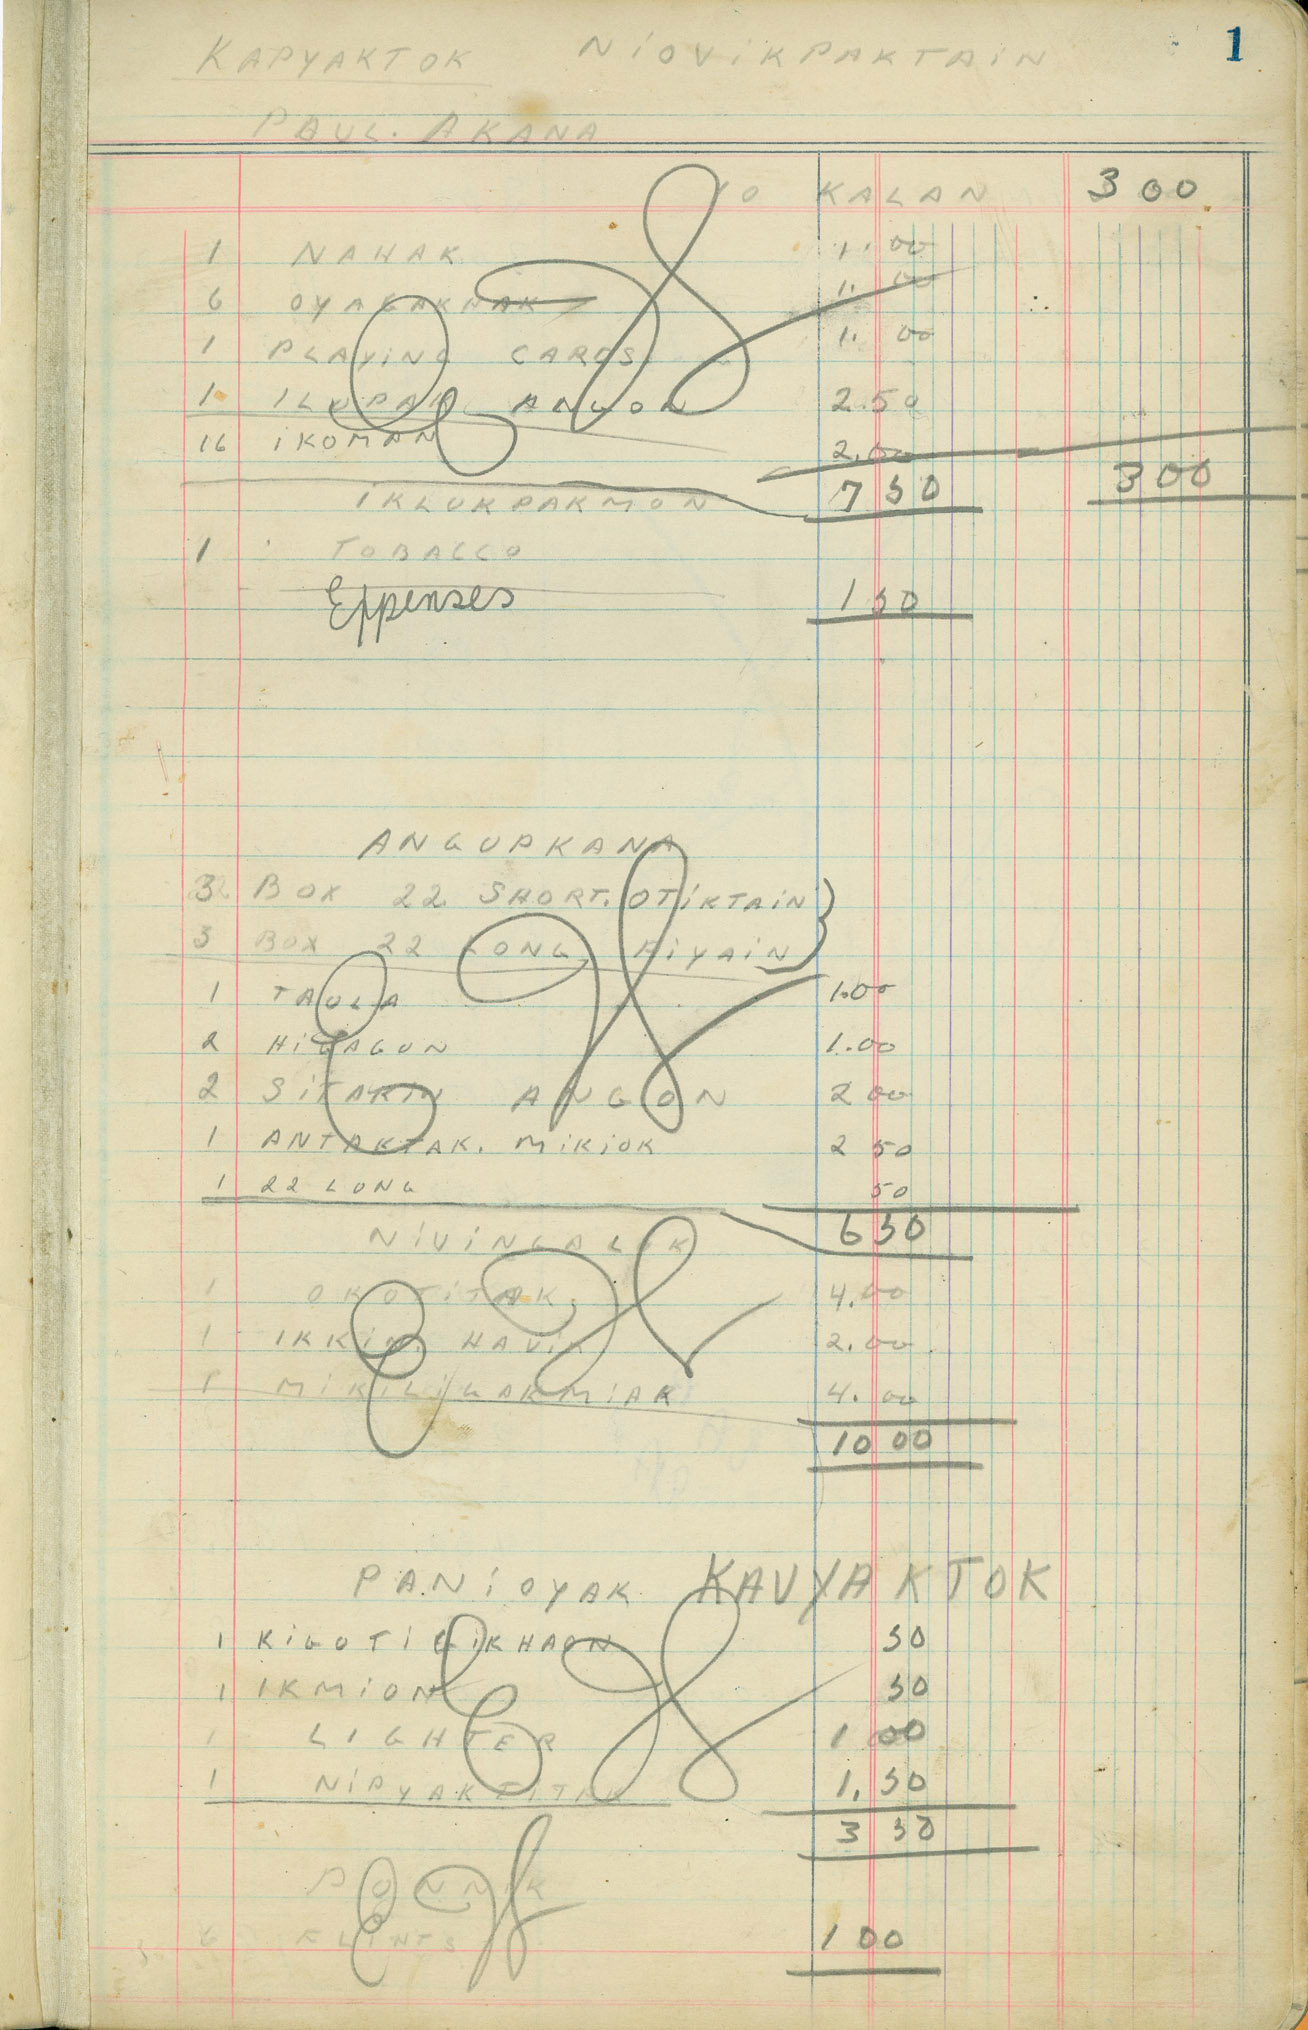 1
KAPYAKTOK NiOViKPAKTAiN
PAUL. AKANA
10 KALAN 300
1 NAHAK 1.00
6 1.00
1 PLAYiNG CARDS 1.00
1 ILUPAK ANGON 2.50
16 iKOMAN 2.00
7 50 300
IKLUKPAKMON
1 TOBACCO
Eppenses 1 50
ANGUPKANA
3 BOX 22 SHORT. OTiKTAiN
3 BOX 22 LONG
1 TAULA 1.00
2 HiGAGUN 1.00
2 ANGON 2 00
1 ANTAKTAK. MiKiOK 2 50
1 22 LONG 50
6 50
NiViNGALOK
1 OKOTiTAK 4.00
1 IKKiN HAViK 2.00
1 4.00
10 00
PANiOYAK KAVYAKTOK
1 50
1 IKMiON 50
1 LIGHTER 1 00
1 1.50
3 50
6 FLINTS 1 00